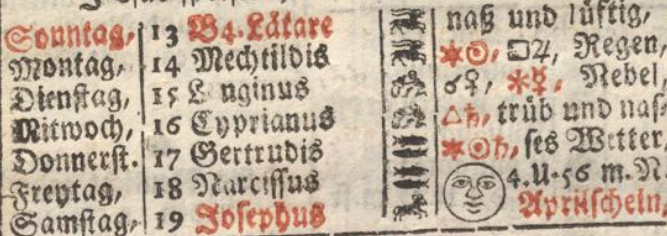 Sonntag, 13 B4. Lätare naß und lüftig,
Montag, 14 Mechtildis ⚹☉, □♃, Regen,
Dienstag, 15 L nginus ☌♀, ⚹☿, Nebel
Mitwoch, 16 Cyprianus △♄, trüb und naß
Donnerst. 17 Gertrudis ⚹☉♄, ses Wetter,
Freytag, 18 Narcissus 4. U. 56 m. N.
Samstag, 19 Josephus Aprilschein,